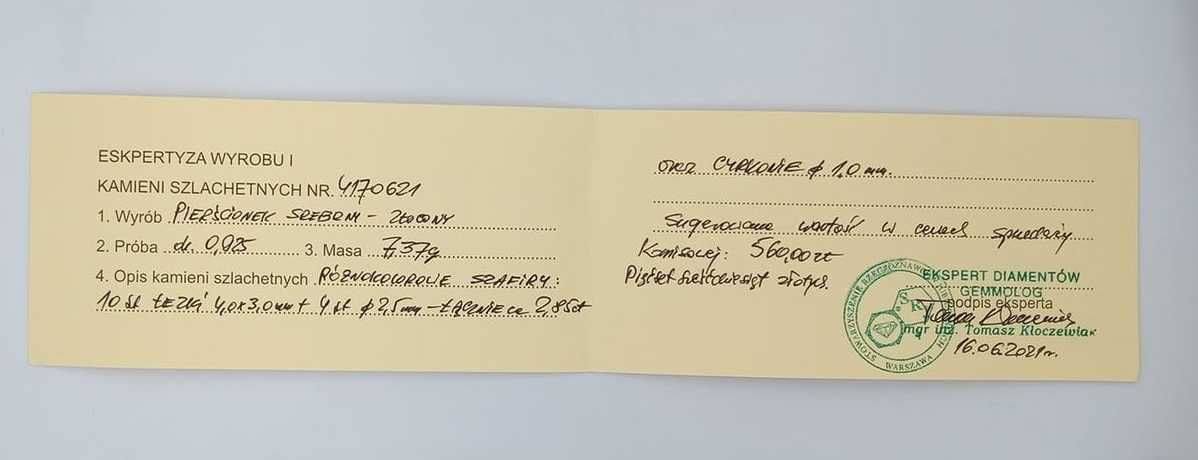 ESKPERTYZA WYROBU I
KAMIENI SZLACHETNYCH NR. 4170621
1. Wyrób PIERŚCIONEK SREBRNY - ZŁOCONY
2. Próba ok. 0,925 3. Masa 7,37g
4. Opis kamieni szlachetnych RÓŻNOKOLOROWE SZAFIRY:
10 szt ŁEZKI 4,0x3,0mm + 4 szt ϕ 2,5mm - ŁĄCZNIE ca 2,85ct
oraz CYRKONIE ϕ 1,0 mm.
Sugerowana wartość w cenach sprzedaży
Komisowej: 560,00 zł
Pięćset sześćdziesiąt złotych.
EKSPERT DIAMENTÓW
GEMMOLOG
podpis eksperta
mgr inż. Tomasz Kłoczewiak
16.06.2021r.
STOWARZYSZENIE RZECZOZNAWCÓW
WARSZAWA